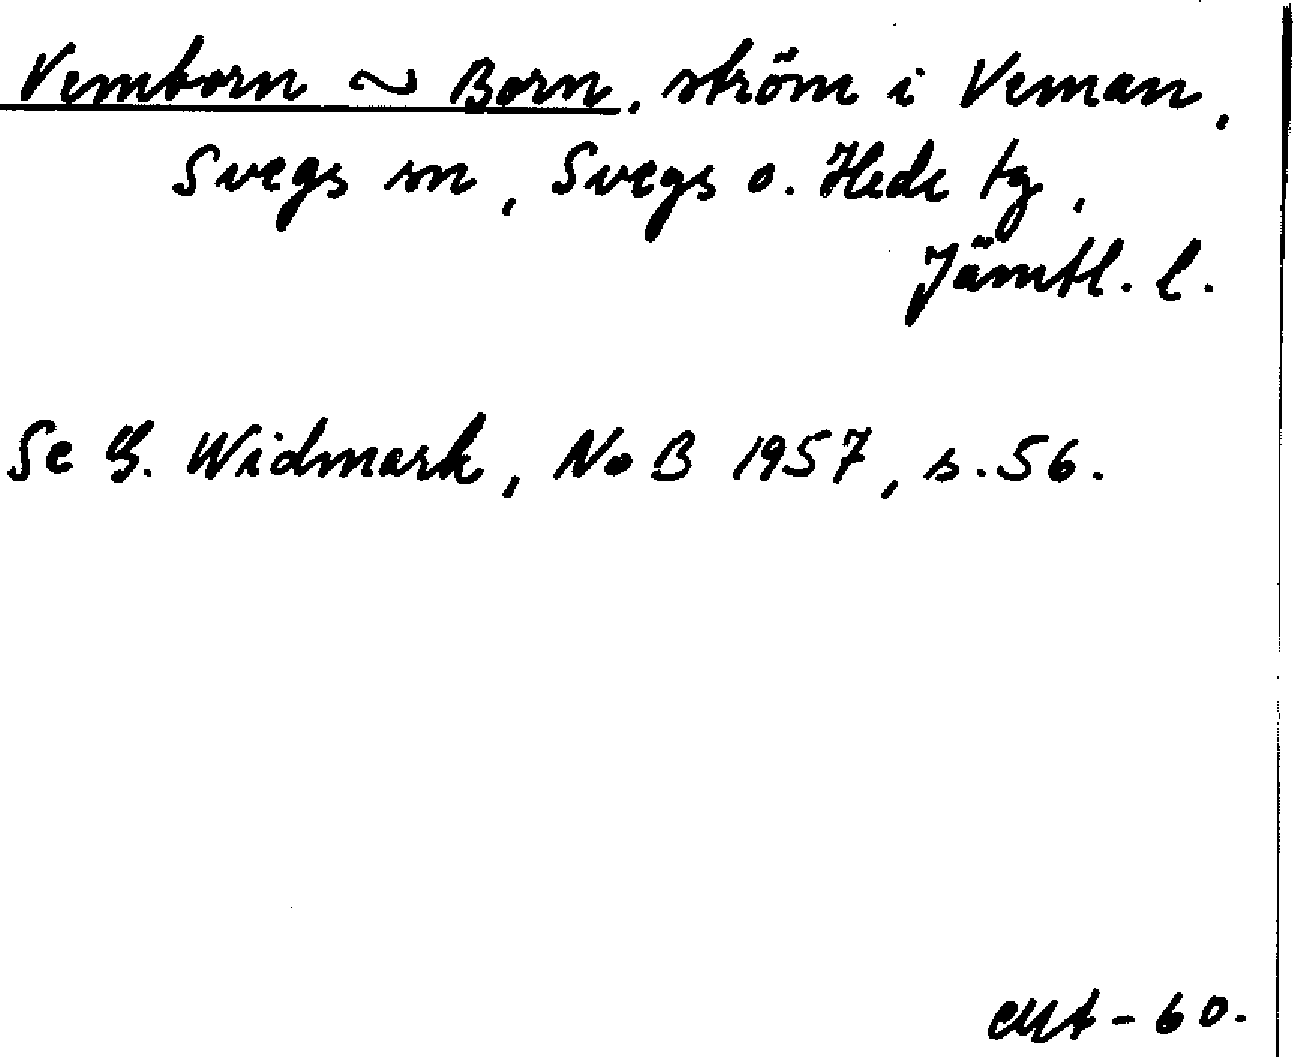 Vemborn ~ Born, ström i Veman,
Svegs sn, Svegs o. Hede tg,
Jämtl. l.
Se G. Widmark, NoB 1957, s. 56.
-60.